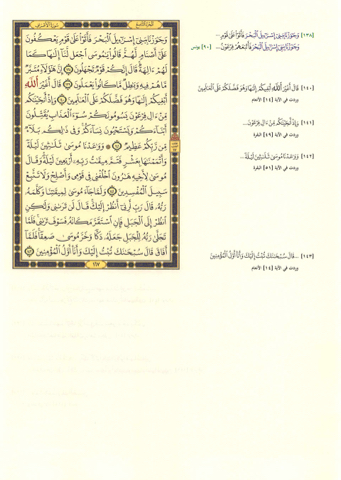 الجزء التاسع
سورة الأعراف
وَجَٰوَزْنَا بِبَنِىٓ إِسْرَٰٓءِيلَ ٱلْبَحْرَ فَأَتَوْا۟ عَلَىٰ قَوْمٍ يَعْكُفُونَ
عَلَىٰٓ أَصْنَامٍ لَّهُمْ ۚ قَالُوا۟ يَٰمُوسَى ٱجْعَل لَّنَآ إِلَٰهًا كَمَا
لَهُمْ ءَالِهَةٌ ۚ قَالَ إِنَّكُمْ قَوْمٌ تَجْهَلُونَ ١٣٨ إِنَّ هَٰٓؤُلَآءِ مُتَبَّرٌ
مَّا هُمْ فِيهِ وَبَٰطِلٌ مَّا كَانُوا۟ يَعْمَلُونَ ١٣٩ قَالَ أَغَيْرَ ٱللَّهِ
أَبْغِيكُمْ إِلَٰهًا وَهُوَ فَضَّلَكُمْ عَلَى ٱلْعَٰلَمِينَ ١٤٠ وَإِذْ أَنجَيْنَٰكُم
مِّنْ ءَالِ فِرْعَوْنَ يَسُومُونَكُمْ سُوٓءَ ٱلْعَذَابِ ۖ يُقَتِّلُونَ
أَبْنَآءَكُمْ وَيَسْتَحْيُونَ نِسَآءَكُمْ ۚ وَفِى ذَٰلِكُم بَلَآءٌ
مِّن رَّبِّكُمْ عَظِيمٌ ١٤١ وَوَٰعَدْنَا مُوسَىٰ ثَلَٰثِينَ لَيْلَةً
وَأَتْمَمْنَٰهَا بِعَشْرٍ فَتَمَّ مِيقَٰتُ رَبِّهِۦٓ أَرْبَعِينَ لَيْلَةً ۚ وَقَالَ
مُوسَىٰ لِأَخِيهِ هَٰرُونَ ٱخْلُفْنِى فِى قَوْمِى وَأَصْلِحْ وَلَا تَتَّبِعْ
سَبِيلَ ٱلْمُفْسِدِينَ ١٤٢ وَلَمَّا جَآءَ مُوسَىٰ لِمِيقَٰتِنَا وَكَلَّمَهُۥ
رَبُّهُۥ قَالَ رَبِّ أَرِنِىٓ أَنظُرْ إِلَيْكَ ۚ قَالَ لَن تَرَىٰنِى وَلَٰكِنِ
ٱنظُرْ إِلَى ٱلْجَبَلِ فَإِنِ ٱسْتَقَرَّ مَكَانَهُۥ فَسَوْفَ تَرَىٰنِى ۚ فَلَمَّا
تَجَلَّىٰ رَبُّهُۥ لِلْجَبَلِ جَعَلَهُۥ دَكًّا وَخَرَّ مُوسَىٰ صَعِقًا ۚ فَلَمَّآ
أَفَاقَ قَالَ سُبْحَٰنَكَ تُبْتُ إِلَيْكَ وَأَنَا۠ أَوَّلُ ٱلْمُؤْمِنِينَ ١٤٣
١٦٧
[١٣٨] وَجَٰوَزْنَا بِبَنِىٓ إِسْرَٰٓءِيلَ ٱلْبَحْرَ فَأَتَوْا۟ عَلَىٰ قَوْمٍ...
وَجَٰوَزْنَا بِبَنِىٓ إِسْرَٰٓءِيلَ ٱلْبَحْرَ فَأَتْبَعَهُمْ فِرْعَوْنُ... [٩٠] يونس
[١٤٠] قَالَ أَغَيْرَ ٱللَّهِ أَبْغِيكُمْ إِلَٰهًا وَهُوَ فَضَّلَكُمْ عَلَى ٱلْعَٰلَمِينَ
وردت في الآية [١٤] الأنعام
[١٤١] وَإِذْ أَنجَيْنَٰكُم مِّنْ ءَالِ فِرْعَوْنَ...
وردت في الآية [٤٩] البقرة
[١٤٢] وَوَٰعَدْنَا مُوسَىٰ ثَلَٰثِينَ لَيْلَةً...
وردت في الآية [٥١] البقرة
[١٤٣] ...قَالَ سُبْحَٰنَكَ تُبْتُ إِلَيْكَ وَأَنَا۠ أَوَّلُ ٱلْمُؤْمِنِينَ
وردت في الآية [١٤] الأنعام